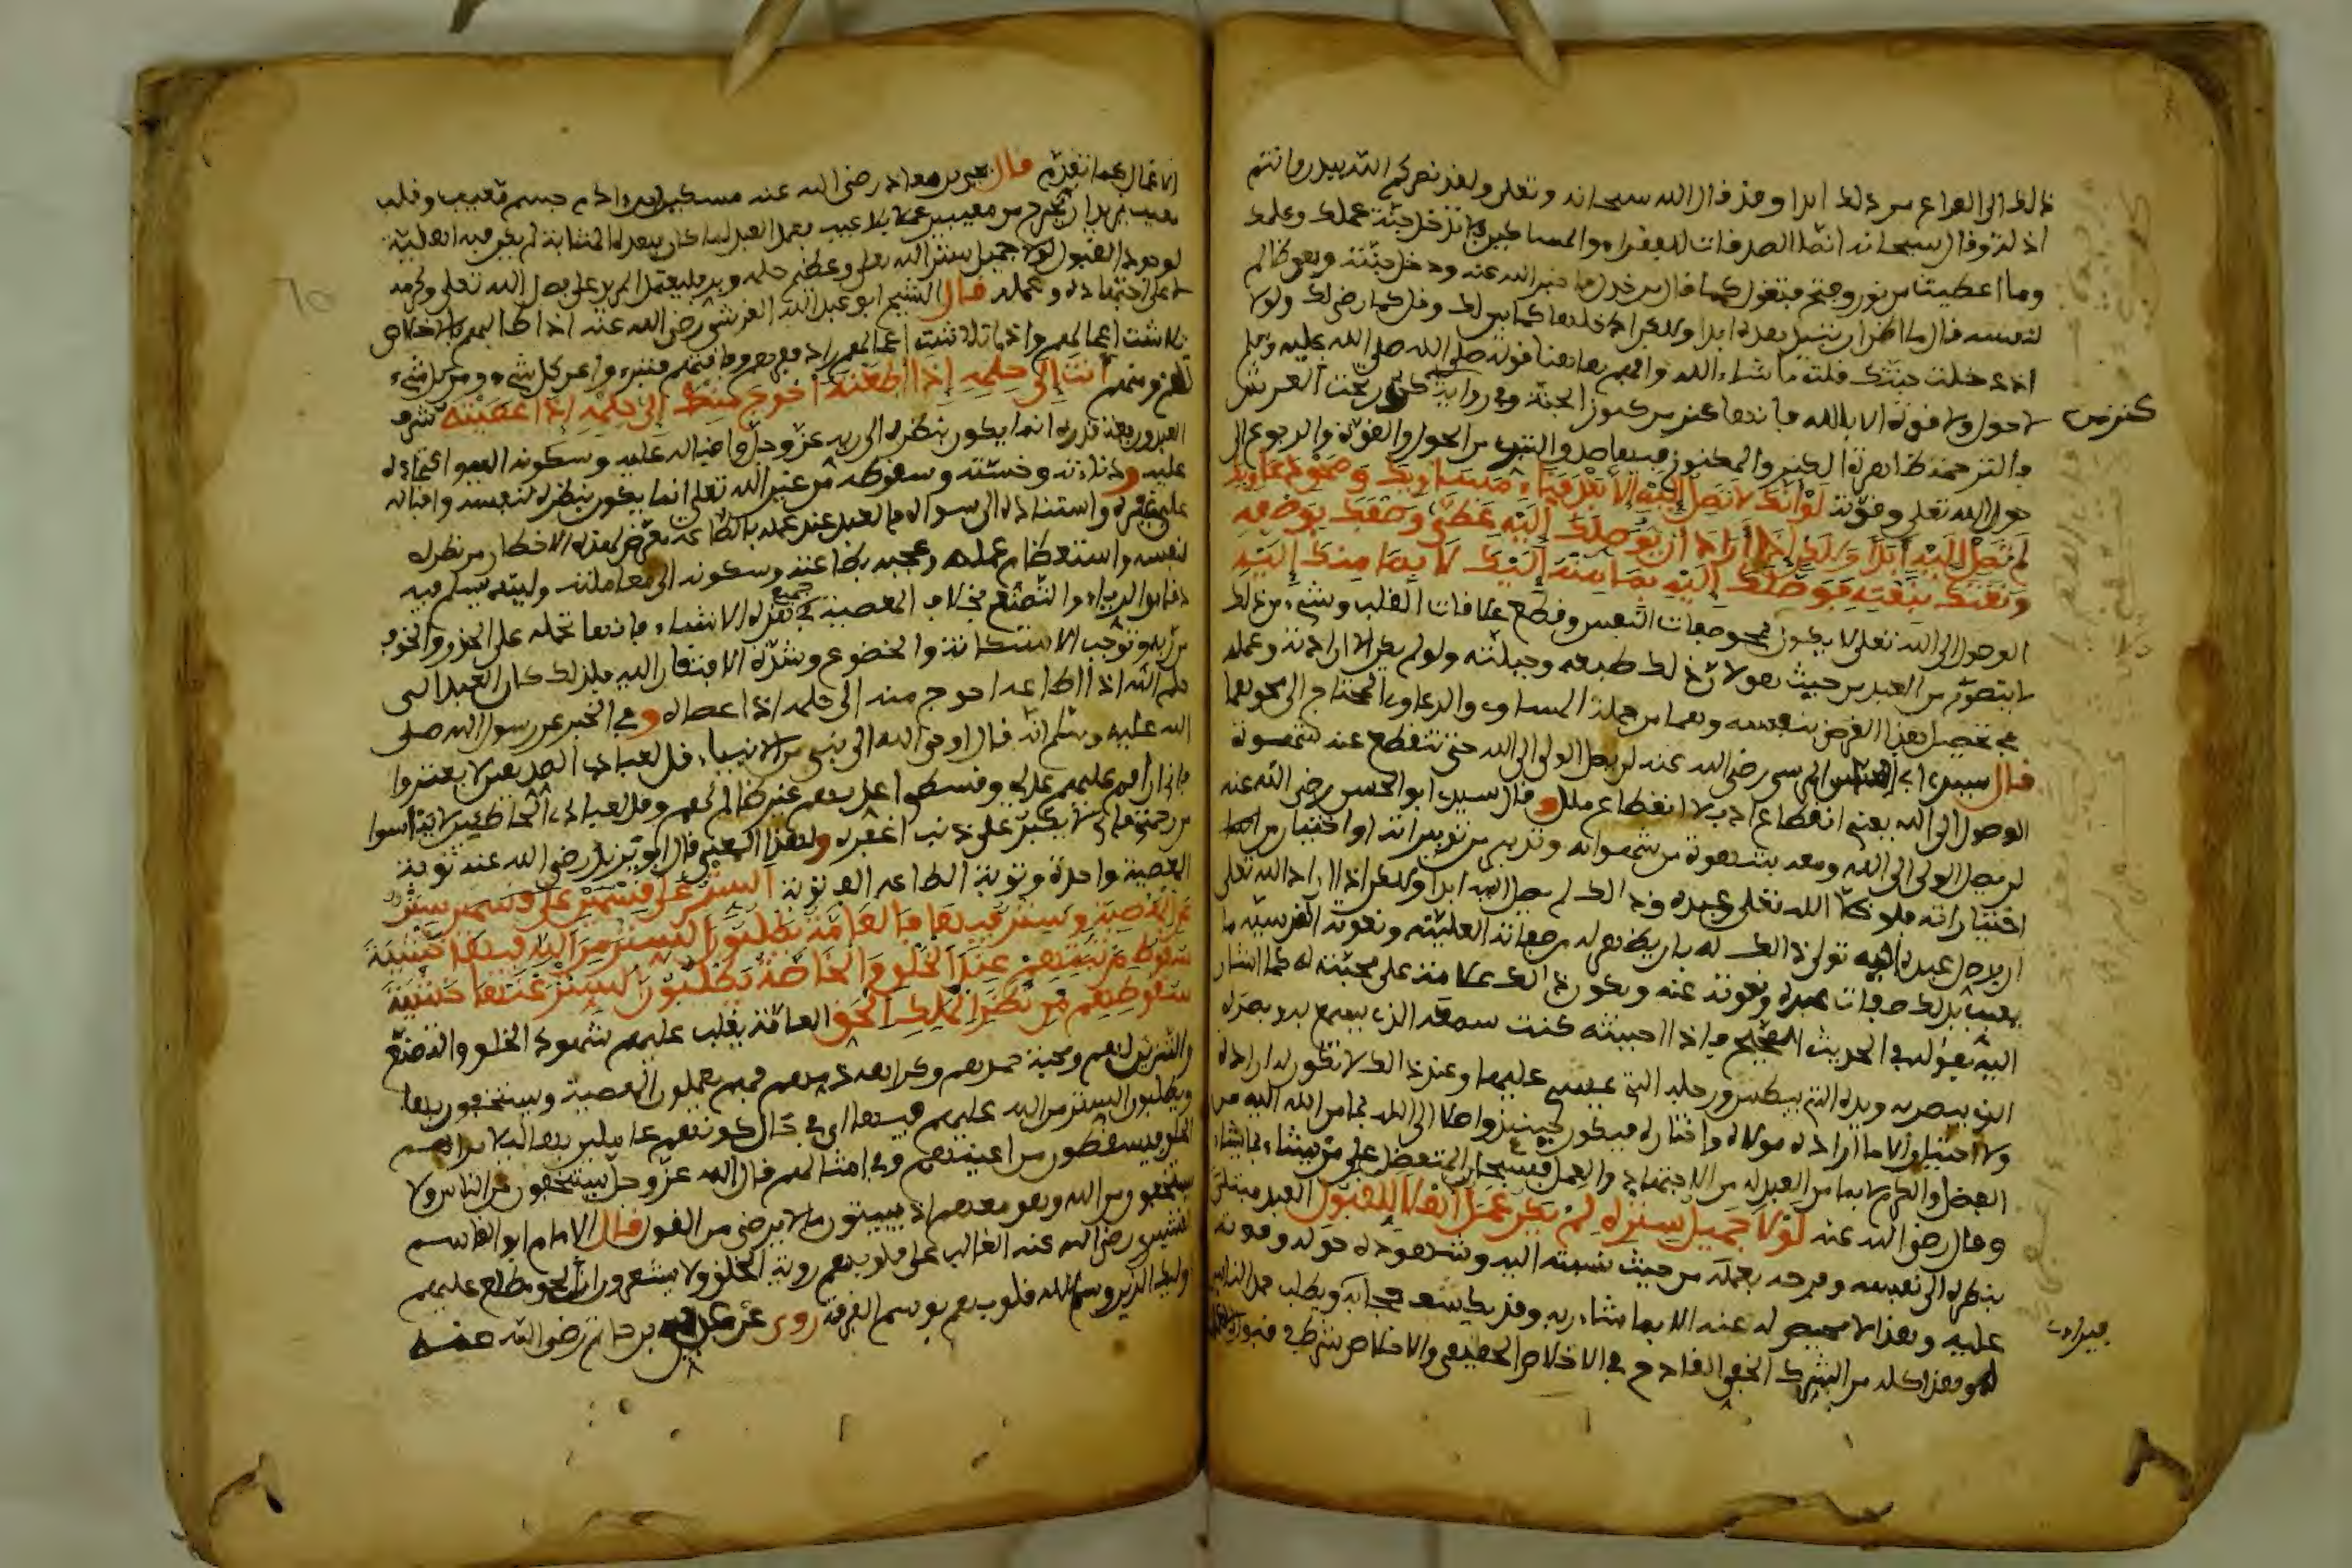 ذلك الى الفراغ من ذلك ابدا وقد قال الله سبحانه وتعلى ولقد نصركم الله ببدر وانتم
اذلة وقال سبحانه انما الصدقات للفقراء والمساكين لا تدخل جنة عملك وعلمك
وما اعطيت من نور وفتح فتقول كما قال من خذل فاخبر الله عنه ودخل جنته وهو ظالم
لنفسه قال ما اظن ان تبيد هذه ابدا ولكن ادخلها كما بين لك وقل كما رضي لك ولولا
اذ دخلت جنتك قلت ما شاء الله وافهم هاهنا قوله صلى الله عليه وسلم
لا حول ولا قوة الا بالله فانها كنز من كنوز الجنة وفي رواية كنز تحت العرش
كنز من
فالترجمة ظاهرة الكنز والمكنوز فيها صدق التبري من الحول والقوة والرجوع الى
حول الله تعلى وقوته لو انك لا تصل اليه الا بعد فناء مساويك ومحو دعاويك
لم تصل اليه ابدا ولكن اذا اراد ان يوصلك اليه غطى وصفك بوصفه
ونعتك بنعته فوصلك اليه بما منه اليك لا بما منك اليه
الوصول الى الله تعلى لا يكون بمحو صفات النفس وقطع علاقات القلب وشيء من ذلك
لا يتصور من العبد من حيث هو لان ذلك طبعه وجبلته ولو لم يكن الا ارادته وعمله
في تحصيل هذا الغرض بنفسه وهما من جملة المساوي والدعاوي المحتاج الى محوهما
قال سيدي ابو العباس المرسي رضي الله عنه لن يصل الولي الى الله حتى تنقطع عنه شهوة
الوصول الى الله يعني انقطاع ادب لا انقطاع ملل وقال سيدي ابو الحسن رضي الله عنه
لن يصل الولي الى الله ومعه شهوة من شهواته وتدبير من تدبيراته او اختيار من
اختياراته فلو خلا الله تعلى عبده وذلك لم يصل اليه ابدا ولكن اذا اراد الله تعلى
ان يوصل عبده اليه تولى ذلك له بان يظهر له من صفاته العلية ونعوته القدسية ما
يغيب بذلك صفات عبده ونعوته عنه ويكون ذلك علامة على محبته له كما اشار
اليه بقوله في الحديث الصحيح فاذا احببته كنت سمعه الذي يسمع به وبصره
الذي يبصر به ويده التي يبطش ورجله التي يمشي عليها وعند ذلك لا تكون له ارادة
ولا اختيار الا ما اراده مولاه واختاره فيكون حينئذ واصلا الى الله بما من الله اليه من
الفضل والكرم لا بما من العبد له من الاجتهاد والعمل فسبحان المتفضل على من يشاء بما يشاء
وقال رضي الله عنه لولا جميل ستره لم يكن عمل اهلا للقبول العبد مبتلى
بنظره الى نفسه وفرحه بعمله من حيث نسبته اليه وشهوده حوله وقوته
عليه وهذا لا محيص له عنه الا بما شاء ربه وقد يكشف حجابه ويطلب حمد الناس
له وهذا كله من الشرك الخفي القادح في الاخلاص الحقيقي والاخلاص شرط في قبول
الاعمال كما تقدم قال يحيى بن معاذ رضي الله عنه مسكين ابن ادم جسم معيب وقلب
معيب يريد ان يخرج من معيبين عملا بلا عيب فعمل العبد لما كان بهذه المثابة لم يكن فيه اهلية
لوجود القبول لولا جميل ستر الله تعلى وعظيم حلمه وبره فليعتمد المريد على فضل الله تعلى وكرمه
لا على اجتهاده وعمله قال الشيخ ابو عبد الله القرشي رضي الله عنه اذا طالبهم بالاخلاص
تلاشت اعمالهم واذا تلاشت اعمالهم زاد فقرهم وفاقتهم فتبرءوا عن كل شيء ومن كل شيء
لهم ومنهم انت الى حلمه اذا اطعته احوج منك الى حلمه اذا عصيته شرف
العبد ورفعة قدره انما يكون بنظره الى ربه عز وجل واقباله عليه وسكونه اليه واعتماده
عليه ودناءته وخسته وسقوطه من عين الله تعلى انما يكون بنظره لنفسه واقباله
على غيره واستناده الى سواه فالعبد عند عمله بالطاعة تعرض لهذه الاخطار من نظره
لنفسه واستعظام عمله وعجبه بطاعته وسكونه الى معاملته وليته يسلم فيه
دقائق الرياء والتصنع بخلاف المعصية في جميع هذه الاشياء فانها تحمله على الحذر والخوف
من ربه وتوجب الاستكانة والخضوع وشدة الافتقار اليه فلذلك كان العبد الى
حلم الله اذا اطاعه احوج منه الى حلمه اذا عصاه وفي الخبر عن رسول الله صلى
الله عليه وسلم انه قال اوحى الله الى نبي من الانبياء قل لعبادي الصديقين لا يغتروا
فاني ان اقم عليهم عدلي وقسطي اعذبهم غير ظالم لهم وقل لعبادي الخاطئين لا تيأسوا
من رحمتي فاني لا يكبر علي ذنب اغفره ولهذا المعنى قال ابو يزيد رضي الله عنه توبة
المعصية واحدة وتوبة الطاعة الف توبة الستر على قسمين ستر
عن المعصية وستر فيها فالعامة يطلبون الستر من الله فيها خشية
سقوط مرتبتهم عند الخلق والخاصة يطلبون الستر عنها خشية
سقوطهم من نظر الملك الحق العامة يغلب عليهم شهود الخلق والتصنع
والتزين لهم ومحبة حمدهم وكراهة ذمهم فهم يعملون المعصية ويستخفون بها
ويطلبون الستر من الله عليهم فيها اي في حال كونهم عاملين بها لئلا يراهم
الخلق فيسقطون من اعينهم وفي امثالهم قال الله عز وجل يستخفون من الناس ولا
يستخفون من الله وهو معهم اذ يبيتون ما لا يرضى من القول قال الامام ابو القاسم
القشيري رضي الله عنه الغالب على قلوبهم رؤية الخلق ولا يشعرون ان الحق مطلع عليهم
اولئك الذين وسم الله قلوبهم بوسم الفرقة روي عن عدي بن حاتم رضي الله عنه